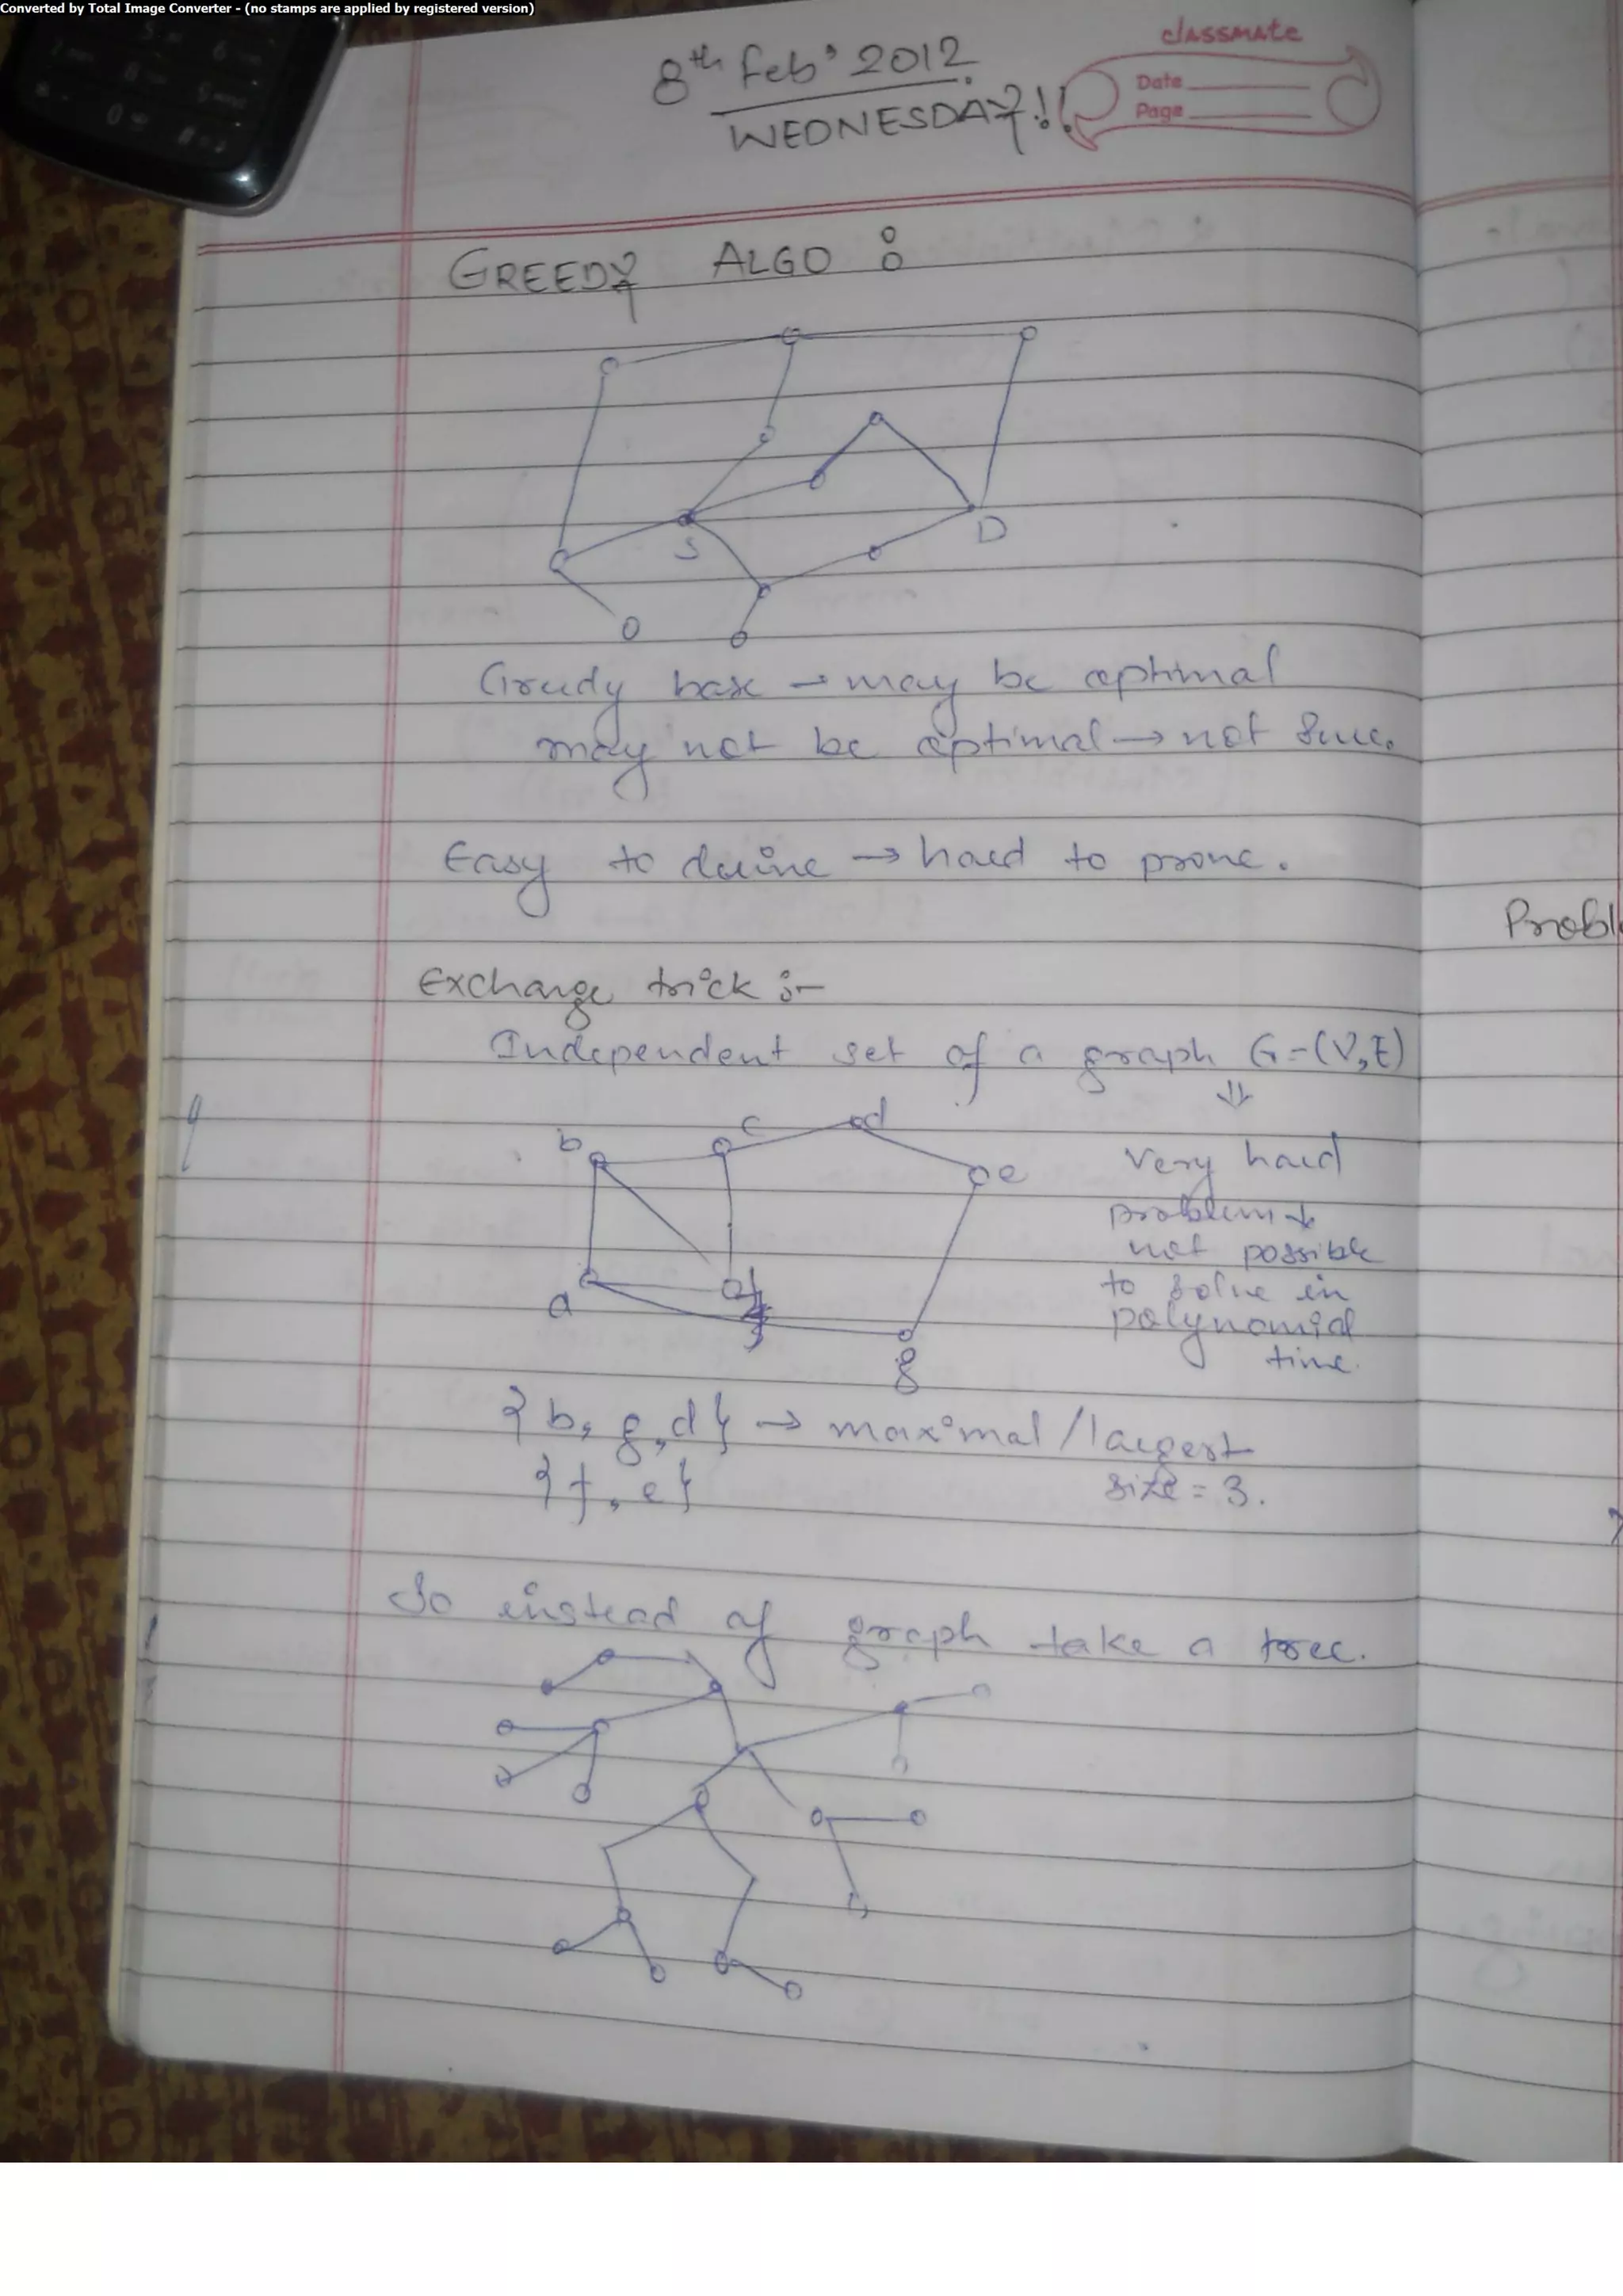 Converted by Total Image Converter - (no stamps are applied by registered version)
classmate
Date
Page
8th Feb' 2012
WEDNESDAY!!
GREEDY ALGO :
S
D
Greedy base → may be optimal
may not be optimal → not sure.
Easy to derive → hard to prove.
Probl
Exchange trick :-
Independent set of a graph G=(V,E)
⇓
b c d e
Very hard
problem ↓
not possible
to solve in
polynomial
time.
a f g
{b, g, d} → maximal/largest
{f, e} size = 3.
So instead of graph take a tree.